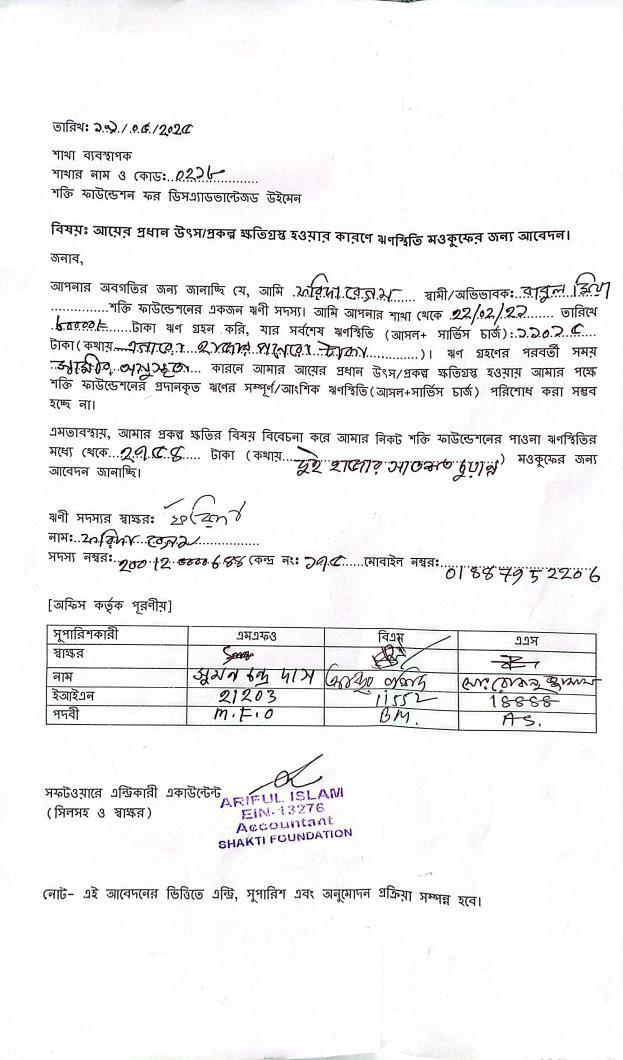 তারিখ:
শাখা ব্যবস্থাপক
শাখার নাম ও কোড:..0226
শক্তি ফাউন্ডেশন ফর ডিসএ্যাডভান্টেজড উইমেন
বিষয়ঃ আয়ের প্রধান উৎস/প্রকল্প ক্ষতিগ্রস্থ হওয়ার কারণে ঋণস্থিতি মওকুফের জন্য আবেদন।
জনাব,
আপনার অবগতির জন্য জানাচ্ছি যে, আমি ফরিদা বেগম স্বামী/অভিভাবক: বাবুল মিয়া
শক্তি ফাউন্ডেশনের একজন ঋণী সদস্য। আমি আপনার শাখা থেকে 22/02/22 তারিখে
টাকা ঋণ গ্রহন করি, যার সর্বশেষ ঋণস্থিতি (আসল+ সার্ভিস চার্জ):
টাকা(কথায় এগারো হাজার পনেরো টাকা)। ঋণ গ্রহণের পরবর্তী সময়
স্বামীর অসুস্থতা কারনে আমার আয়ের প্রধান উৎস/প্রকল্প ক্ষতিগ্রস্থ হওয়ায় আমার পক্ষে
শক্তি ফাউন্ডেশনের প্রদানকৃত ঋণের সম্পূর্ণ/আংশিক ঋণস্থিতি(আসল+সার্ভিস চার্জ) পরিশোধ করা সম্ভব
হচ্ছে না।
এমতাবস্থায়, আমার প্রকল্প ক্ষতির বিষয় বিবেচনা করে আমার নিকট শক্তি ফাউন্ডেশনের পাওনা ঋণস্থিতির
মধ্যে থেকে ২৭৫৪ টাকা (কথায় দুই হাজার সাতশত চুয়ান্ন) মওকুফের জন্য
আবেদন জানাচ্ছি।
ঋণী সদস্যর স্বাক্ষরঃ ফরিদা
নাম: ফরিদা বেগম
সদস্য নম্বর: কেন্দ্র নং: ১৭৫ মোবাইল নম্বর: 01887952206
[অফিস কর্তৃক পূরণীয়]
সুপারিশকারী এমএফও বিএম এএস
স্বাক্ষর
নাম সুমন চন্দ্র দাস
ইআইএন 21203 11552 18888
পদবী M.F.O BM. AS.
সফটওয়ারে এন্ট্রিকারী একাউন্টেন্ট
(সিলসহ ও স্বাক্ষর)
ARIFUL ISLAM
EIN-13276
Accountant
SHAKTI FOUNDATION
নোট- এই আবেদনের ভিত্তিতে এন্ট্রি, সুপারিশ এবং অনুমোদন প্রক্রিয়া সম্পন্ন হবে।